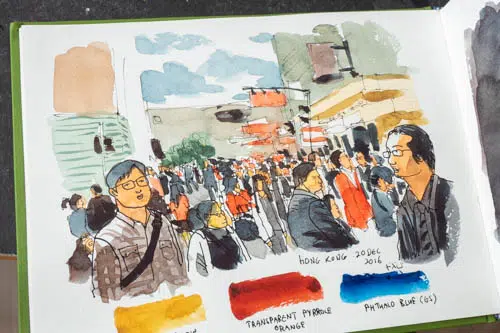 HONG KONG 20 DEC
2016
TRANSPARENT PYRROLE
ORANGE
PHTHALO BLUE (GS)